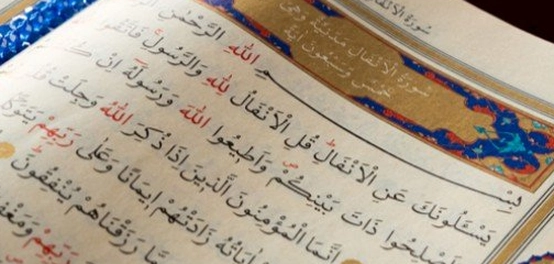 سُورَةُ الْاَنْفَالِ
سُورَةُ الْاَنْفَالِ مَدَنِيَّةٌ وَهِيَ
خَمْسٌ وَسَبْعُونَ اٰيَةً
بِسْمِ اللهِ الرَّحْمٰنِ
يَسْـَٔلُونَكَ عَنِ الْاَنْفَالِ قُلِ الْاَنْفَالُ لِلهِ وَالرَّسُولِ فَاتَّقُوا
وَاَصْلِحُوا ذَاتَ بَيْنِكُمْ وَاَطِيعُوا اللهَ وَرَسُولَهُ اِنْ
اِنَّمَا الْمُؤْمِنُونَ الَّذِينَ اِذَا ذُكِرَ اللهُ وَجِلَتْ
اٰيَاتُهُ زَادَتْهُمْ اِيمَانًا وَعَلٰى رَبِّهِمْ
رَزَقْنَاهُمْ يُنْفِقُونَ
رَبِّهِمْ